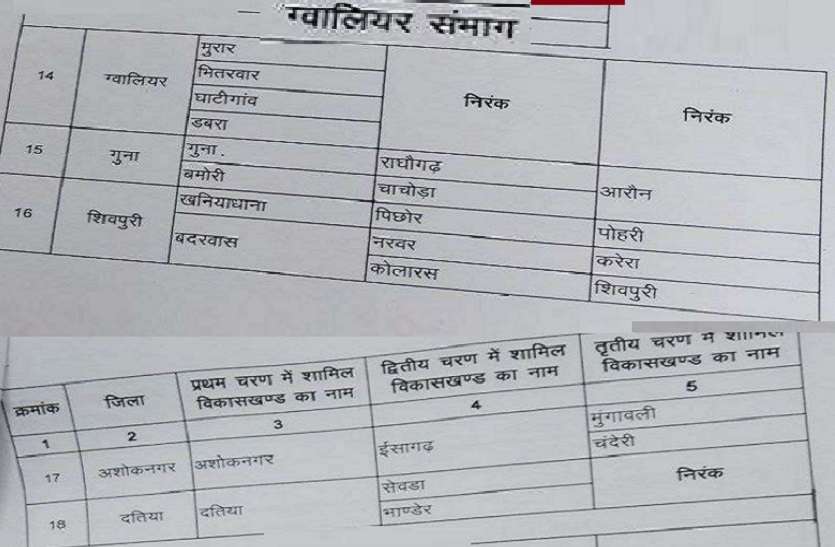 ग्वालियर संभाग
14 ग्वालियर मुरार निरंक निरंक
भितरवार
घाटीगांव
डबरा
15 गुना गुना . राघौगढ़ आरौन
बमोरी चाचोड़ा
16 शिवपुरी खनियाधाना पिछोर पोहरी
बदरवास नरवर करेरा
कोलारस शिवपुरी
क्रमांक जिला प्रथम चरण में शामिल विकासखण्ड का नाम द्वितीय चरण में शामिल विकासखण्ड का नाम तृतीय चरण में शामिल विकासखण्ड का नाम
1 2 3 4 5
17 अशोकनगर अशोकनगर ईसागढ़ मुंगावली
चंदेरी
18 दतिया दतिया सेवडा निरंक
भाण्डेर